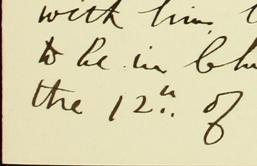 with him
to be in Ch
the 12th. of